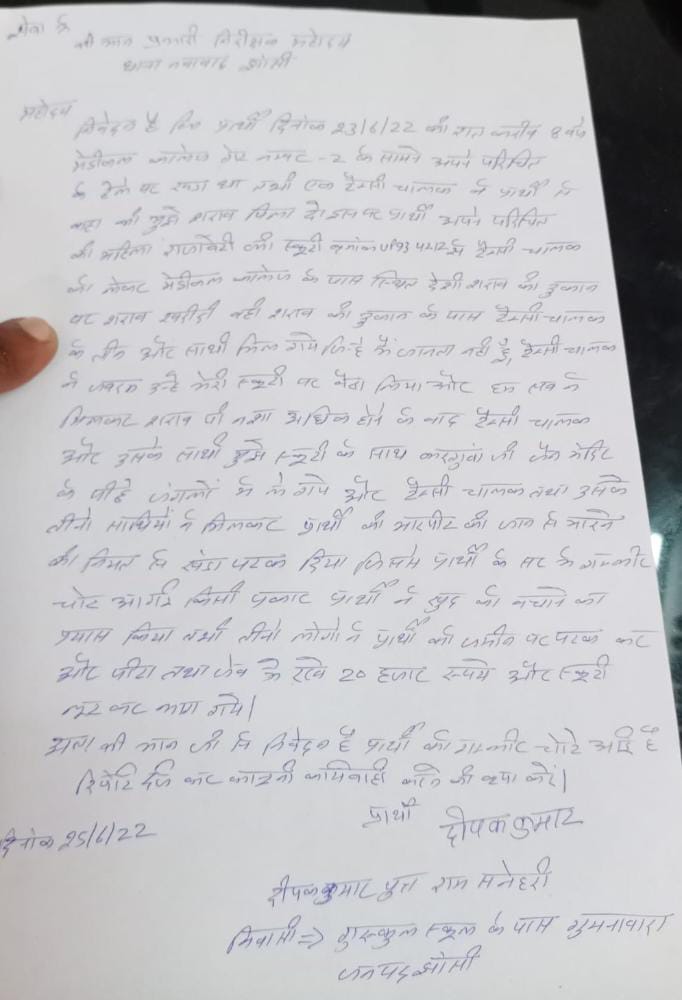 सेवा में
श्री मान प्रभारी निरीक्षक महोदय
थाना नवाबाद झाँसी
महोदय
निवेदन है कि प्रार्थी दिनांक 23/6/22 की रात करीब 8 बजे
मेडीकल कालेज गेट नम्बर -2 के सामने अपने परिचित
के ठेले पर खडा था तभी एक टैक्सी चालक ने प्रार्थी से
कहा की मुझे शराब पिला दो इस पर प्रार्थी अपने परिचित
की महिला की स्कूटी क्रमांक UP93 से टैक्सी चालक
को लेकर मेडीकल कालेज के पास स्थित देशी शराब की दुकान
पर शराब खरीदी वही शराब की दुकान के पास टैक्सी चालक
के तीन और साथी मिल गये जिन्हे मैं जानता नही हूँ, टैक्सी चालक
ने जबरन उन्हे मेरी स्कूटी पर बैठा लिया और हम सब ने
मिलकर शराब पी नशा अधिक होने के बाद टैक्सी चालक
और उसके साथी मुझे स्कूटी के साथ करगुवां जी जैन मंदिर
के पीछे जंगलों में ले गये और टैक्सी चालक तथा उसके
तीनो साथियों ने मिलकर प्रार्थी की मारपीट की जान से मारने
की नियत से खंडा पटक दिया जिससे प्रार्थी के सर में गम्भीर
चोट आगई किसी प्रकार प्रार्थी ने खुद को बचाने का
प्रयास किया तभी तीनो लोगो ने प्रार्थी को जमीन पर पटक कर
और पीटा तथा जेब में रखे 20 हजार रूपये और स्कूटी
लूट कर भाग गये।
अतः श्री मान जी से निवेदन है प्रार्थी को गम्भीर चोटे आई है
रिपोर्ट दर्ज कर कानूनी कार्यवाही करने की कृपा करें।
प्रार्थी दीपक कुमार
दिनांक 25/6/22
दीपक कुमार पुत्र राम मनेहरी
निवासी => गुरुकुल स्कूल के पास गुमनावारा
जनपद झाँसी